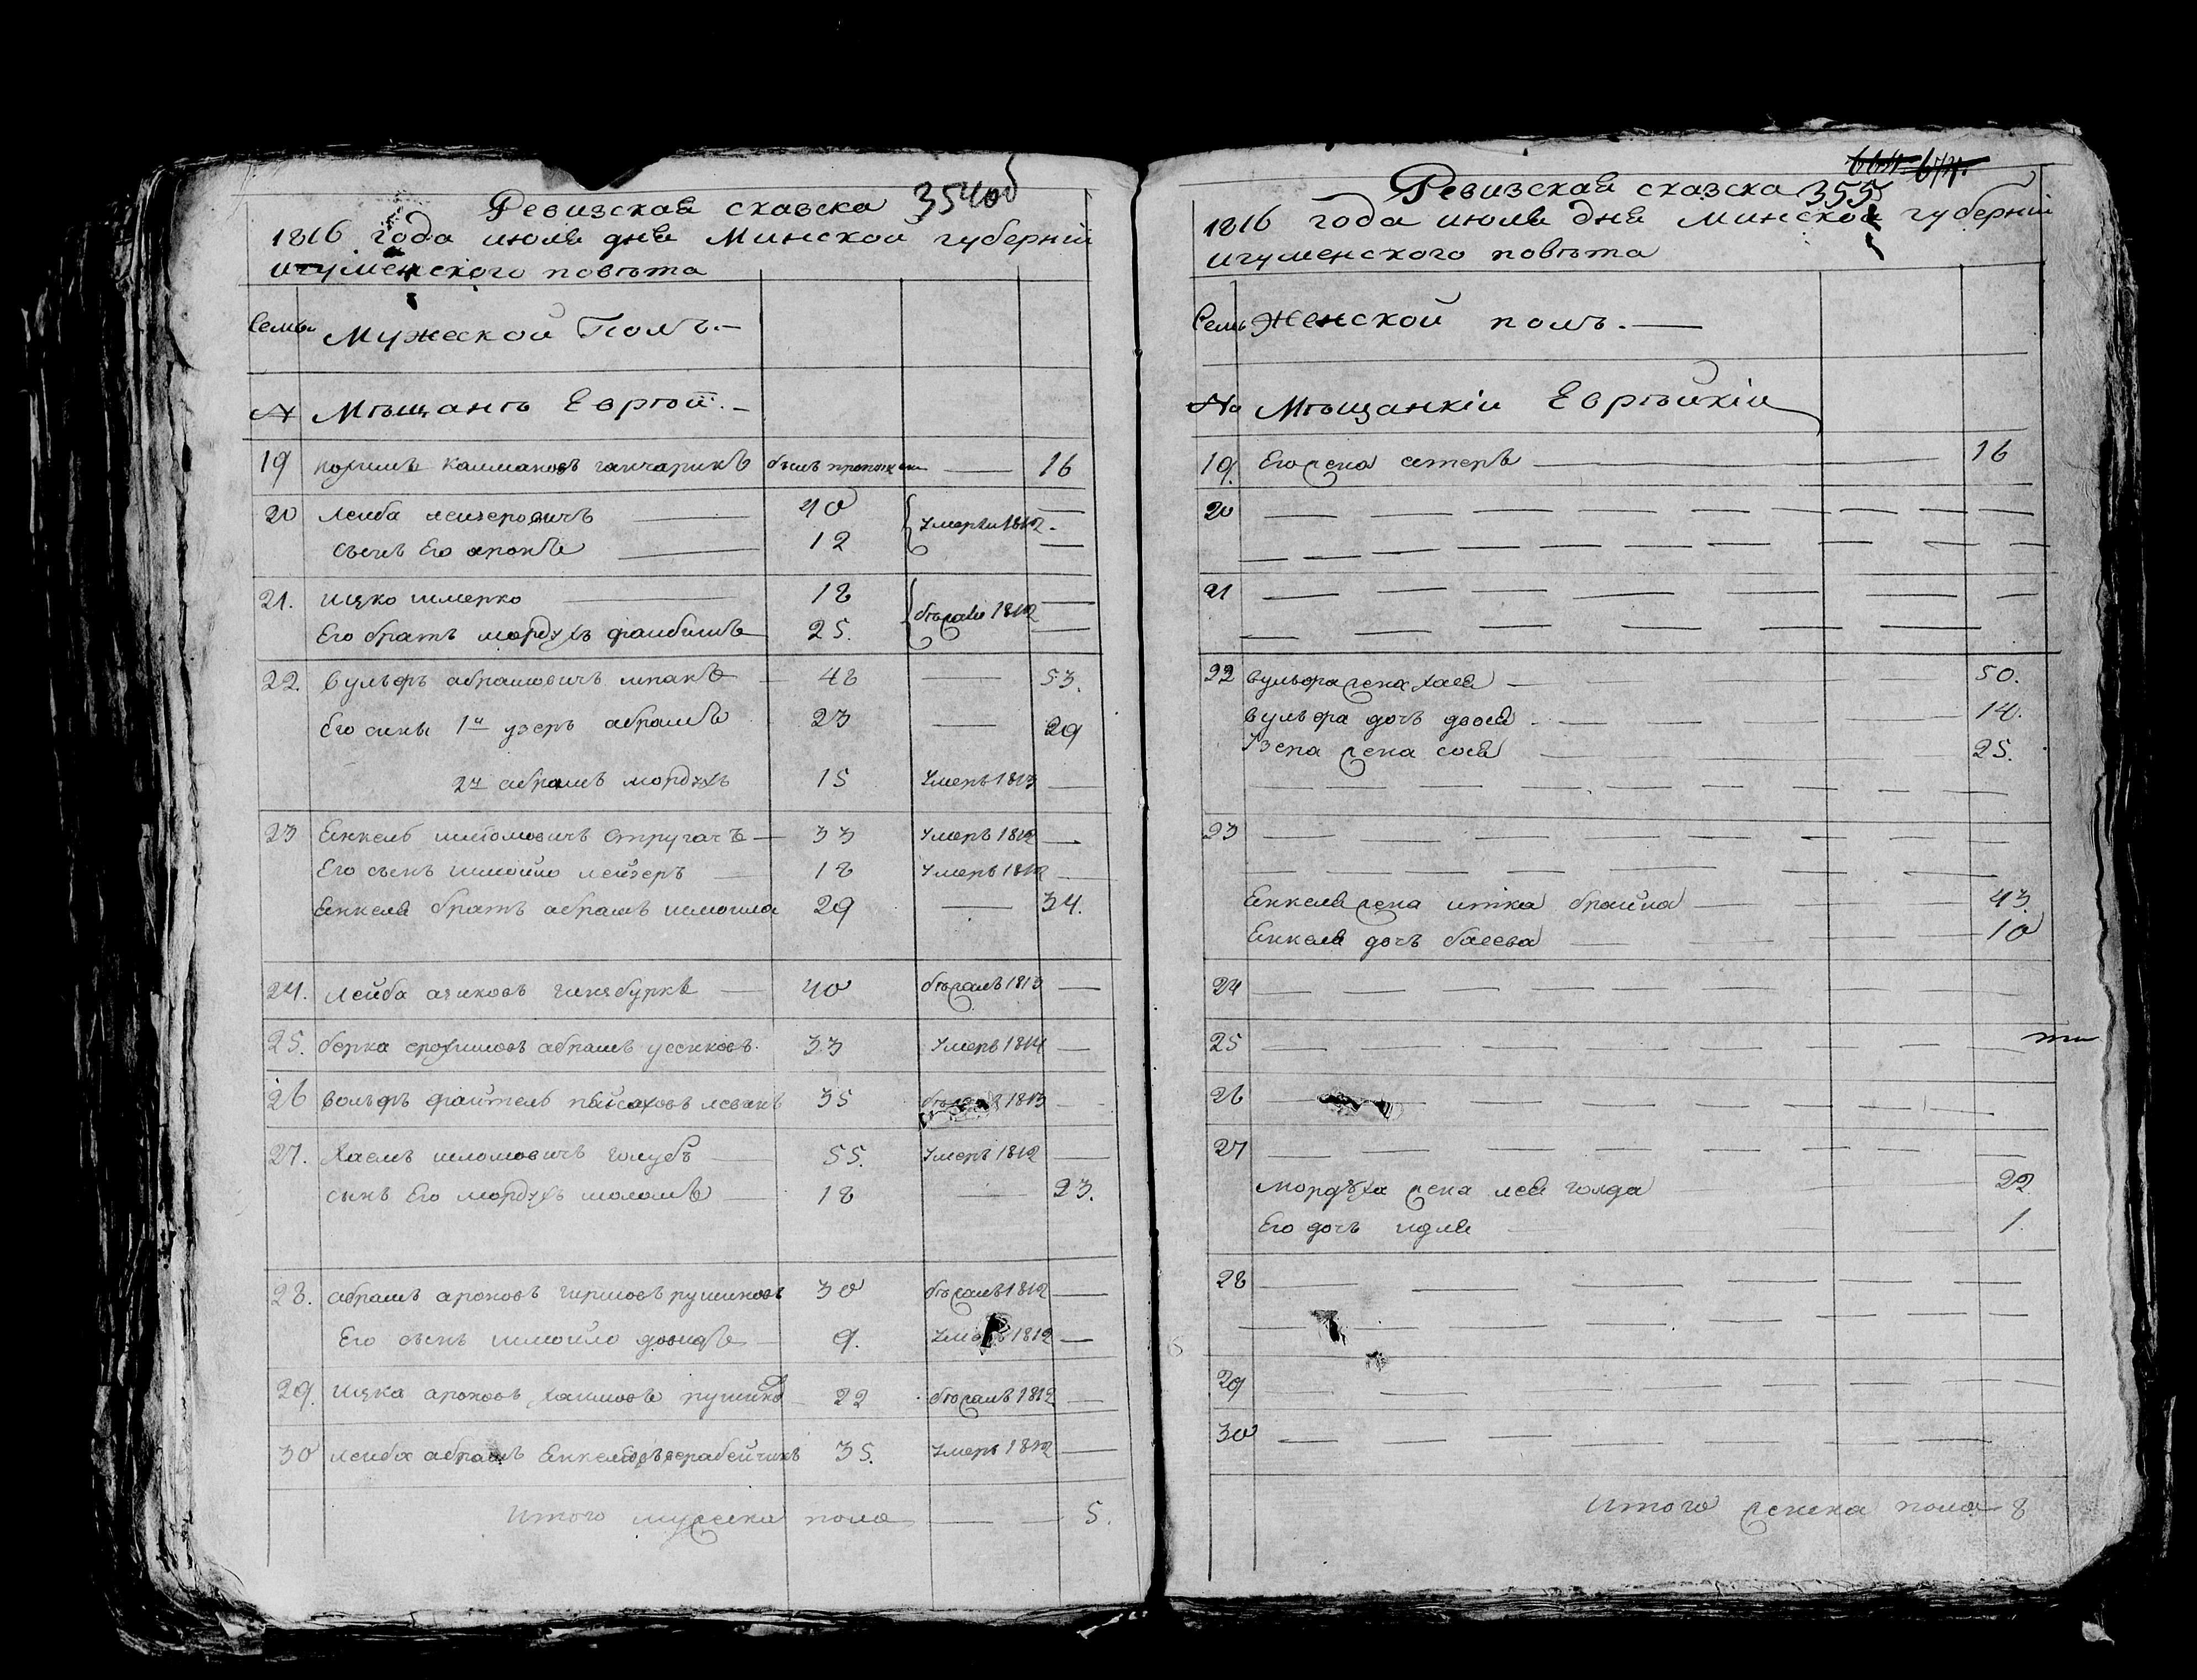 Ревизская сказска 354об
1816 года июля дня Минской губернiи
игуменского повѣта
Семьи Мужеской Полъ.
№ Мѣщанѣ Еврѣи.
19 Калмановъ ганчарикъ былъ пропож 16
20 Леиба леизеровичъ 40 Умерли 1812
сынъ Его аронъ 12
21. ицко шмерко 18 бѣжали 1812
Его братъ мордухъ фаибишъ 25.
22. Вульфъ абрамовичъ шпакъ 48 53.
Его сины 1й узеръ абрамъ 23 29
2й абрамъ мордухъ 15 Умеръ 1813
23 Енкель шломовичъ стругачъ 33 Умеръ 1812
Его сынъ шмойло лейзеръ 18 Умеръ 1812
Енкеля братъ абрамъ шмоила 29 34.
24. Лейба ициковъ гинзбуркъ 40 бѣжалъ 1813
25. берка абрамъ 33 Умеръ 1814
26 Вольфъ фаитель пейсаховъ левинъ 35 бѣжалъ 1813
27. Хаемъ шломовичъ голубъ 55. Умеръ 1812
синъ Его мордухъ шоломъ 18 23.
28. абрамъ ароновъ гиршовъ 30 бѣжалъ 1812
Его сынъ шмойло довидъ 9. Умеръ 1812
29. ицка ароновъ хаимовъ 22 бѣжалъ 1812
30 леиба абрамъ Енкелевъ 35. Умеръ 1812
Итого мужеска пола 5.
Ревизская сказска 355
1816 года июля дня Минской губернiи
игуменского повѣта
Семьи Женской полъ.
№ Мѣщанкiи Еврѣйкiи
19. Его жена естеръ 16
20
21
22 Вульфа жена хая 50.
Вульфа дочъ двося 14.
Узера жена сося 25.
23
Енкеля жена итка браина 43.
Енкеля дочъ басева 10
24
25
26
27
Мордуха жена лея голда 22
Его дочъ идля 1.
28
29
30
Итого женска пола 8